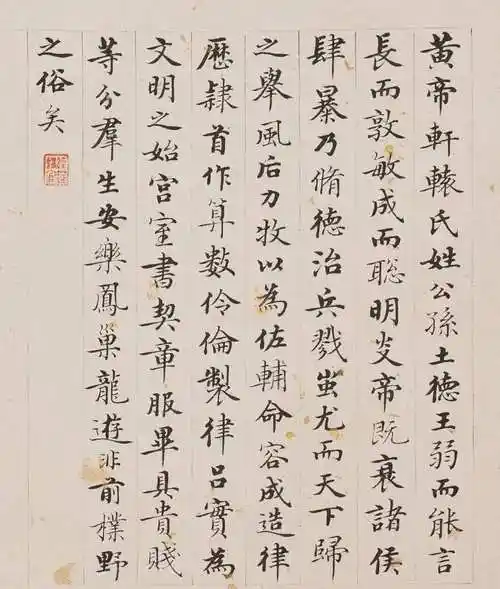 黃帝軒轅氏姓公孫土德王弱而能言
長而敦敏成而聡明炎帝既衰諸侯
肆暴乃脩德治兵戮蚩尤而天下歸
之舉風后力牧以為佐輔命容成造律
歷隸首作算數伶倫製律呂實為
文明之始宮室書契章服畢具貴賤
等分羣生安樂鳳巢龍遊非前樸野
之俗矣